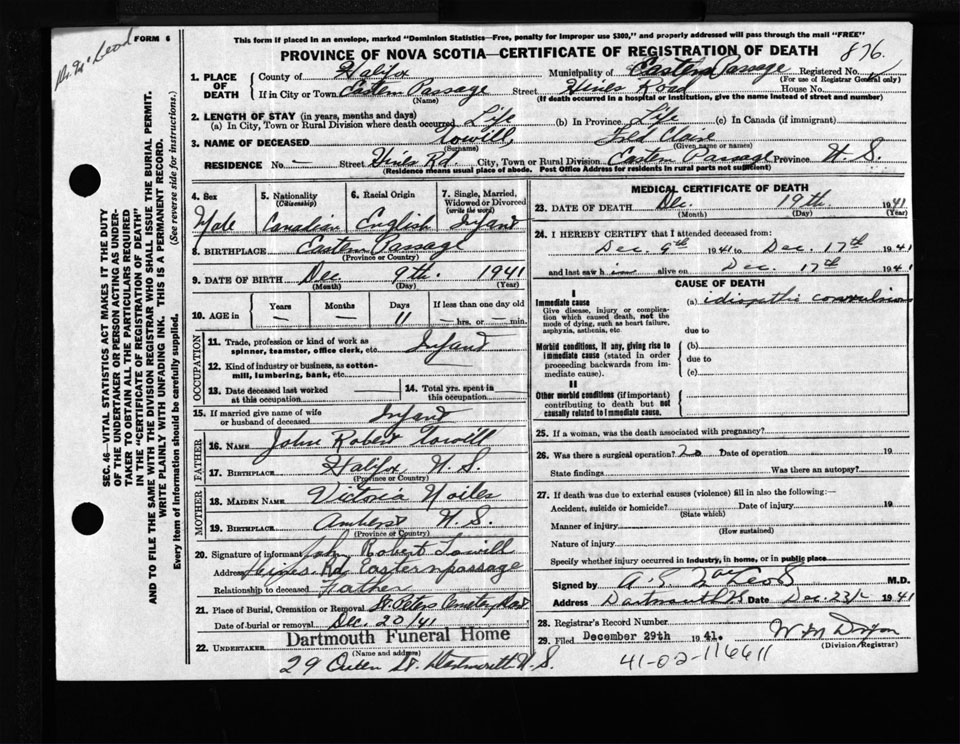 Dr. Mc Leod
FORM 6
This form if placed in an envelope, marked "Dominion Statistics—Free, penalty for improper use $300," and properly addressed will pass through the mail "FREE"
PROVINCE OF NOVA SCOTIA—CERTIFICATE OF REGISTRATION OF DEATH
876
1. PLACE OF DEATH County of Halifax Municipality of Eastern Passage Registered No.
(For use of Registrar General only)
If in City or Town Eastern Passage Street Hines Road House No.
(Name) (If death occurred in a hospital or institution, give the name instead of street and number)
2. LENGTH OF STAY (in years, months and days)
(a) In City, Town or Rural Division where death occurred Life (b) In Province Life (c) In Canada (if immigrant)
3. NAME OF DECEASED Towill, Fred Claire
(Surname) (Given name or names)
RESIDENCE No. — Street Hines Rd City, Town or Rural Division Eastern Passage Province N. S.
(Residence means usual place of abode. Post Office Address for residents in rural parts not sufficient)
4. Sex Male
5. Nationality (Citizenship) Canadian
6. Racial Origin English
7. Single, Married, Widowed or Divorced (write the word) Infant
8. BIRTHPLACE Eastern Passage
(Province or Country)
9. DATE OF BIRTH Dec. 9th. 1941
(Month) (Day) (Year)
10. AGE in Years — Months — Days 11 If less than one day old — hrs. or — min.
OCCUPATION
11. Trade, profession or kind of work as spinner, teamster, office clerk, etc. Infant
12. Kind of industry or business, as cotton-mill, lumbering, bank, etc.
13. Date deceased last worked at this occupation
14. Total yrs. spent in this occupation
15. If married give name of wife or husband of deceased Infant
FATHER
16. NAME John Robert Towill
17. BIRTHPLACE Halifax, N. S.
(Province or Country)
MOTHER
18. MAIDEN NAME Victoria Noiles
19. BIRTHPLACE Amherst N. S.
(Province or Country)
20. Signature of informant John Robert Towill
Address Hines Rd Eastern passage
Relationship to deceased Father
21. Place of Burial, Cremation or Removal St. Peters Cemetry
Date of burial or removal Dec. 20/41
22. UNDERTAKER Dartmouth Funeral Home
(Name and address)
29 Queen St. Dartmouth N. S.
MEDICAL CERTIFICATE OF DEATH
23. DATE OF DEATH Dec. 19th. 1941
(Month) (Day) (Year)
24. I HEREBY CERTIFY that I attended deceased from:
Dec. 9th 1941 to Dec. 17th 1941
and last saw him alive on Dec. 17th 1941
CAUSE OF DEATH
I
Immediate cause (a) idiopathic convulsions
Give disease, injury or complication which caused death, not the mode of dying, such as heart failure, asphyxia, asthenia, etc
due to
Morbid conditions, if any, giving rise to immediate cause (stated in order proceeding backwards from immediate cause).
(b)
due to
(c)
II
Other morbid conditions (if important) contributing to death but not causally related to immediate cause.
25. If a woman, was the death associated with pregnancy?
26. Was there a surgical operation? no Date of operation 19
State findings Was there an autopsy?
27. If death was due to external causes (violence) fill in also the following:—
Accident, suicide or homicide? Date of injury 19
(State which)
Manner of injury
(How sustained)
Nature of injury
Specify whether injury occurred in industry, in home, or in public place
Signed by A. S. MacLeod M.D.
Address Dartmouth Date Dec. 23/ 1941
28. Registrar's Record Number
29. Filed December 29th 1941. W M Dixon
(Division Registrar)
41-02-116611
SEC. 46—VITAL STATISTICS ACT MAKES IT THE DUTY
OF THE UNDERTAKER OR PERSON ACTING AS UNDER-
TAKER TO OBTAIN ALL THE PARTICULARS REQUIRED
IN THE "CERTIFICATE OF REGISTRATION OF DEATH"
AND TO FILE THE SAME WITH THE DIVISION REGISTRAR WHO SHALL ISSUE THE BURIAL PERMIT.
WRITE PLAINLY WITH UNFADING INK. THIS IS A PERMANENT RECORD.
Every item of information should be carefully supplied. (See reverse side for instructions.)